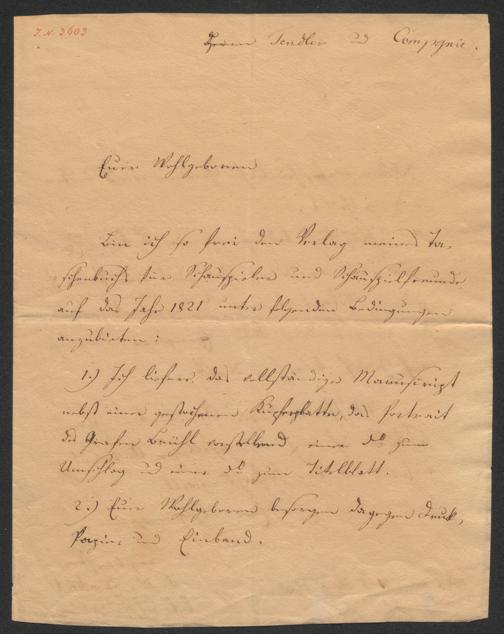 I.N. 3603
Herrn Tendler und Compagnie.
Euer Wohlgeboren
Bin ich so frei den Verlag meines Ta-
schenbuchs für Schauspieler und Schauspielfreunde
auf das Jahr 1821 unter folgenden Bedingungen
anzubieten:
1.) Ich liefere das vollständige Manuscript
nebst einer gestochenen Kupferplatte, das Portrait
des Grafen Brühl vorstellend, eine do zum
Umschlag und eine do zum Titelblatt.
2.) Euer Wohlgeboren besorgen dagegen Druck,
Papier und Einband.